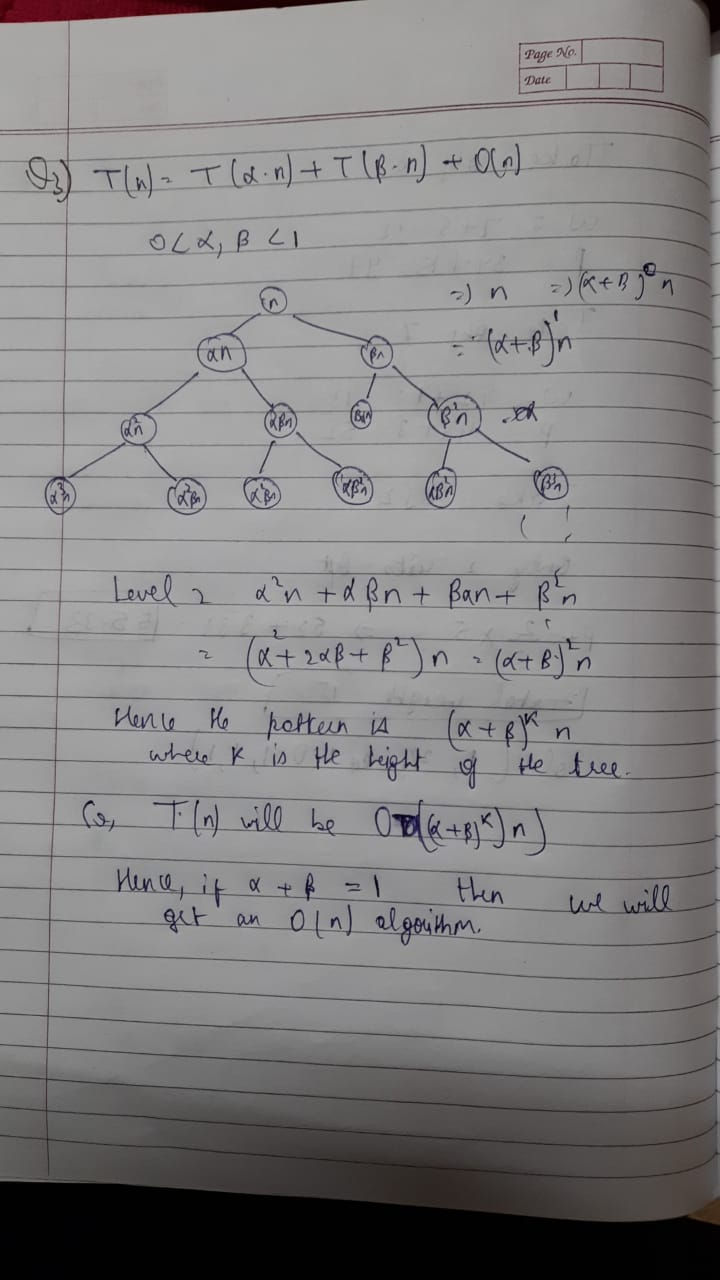 Page No.
Date
Q3) T(n) = T(α·n) + T(β·n) + O(n)
0 < α, β < 1
n
=) n =) (α+β)^0 n
αn βn = (α+β)^1 n
α²n αβn βαn β²n
α³n α²βn α²βn αβ²n αβ²n β³n
Level 2 α²n + αβn + βαn + β²n
= (α² + 2αβ + β²) n = (α+β)² n
Hence the pattern is (α+β)^K n
where K is the height of the tree.
So, T(n) will be O((α+β)^K) n)
Hence, if α + β = 1 then we will
get an O(n) algorithm.